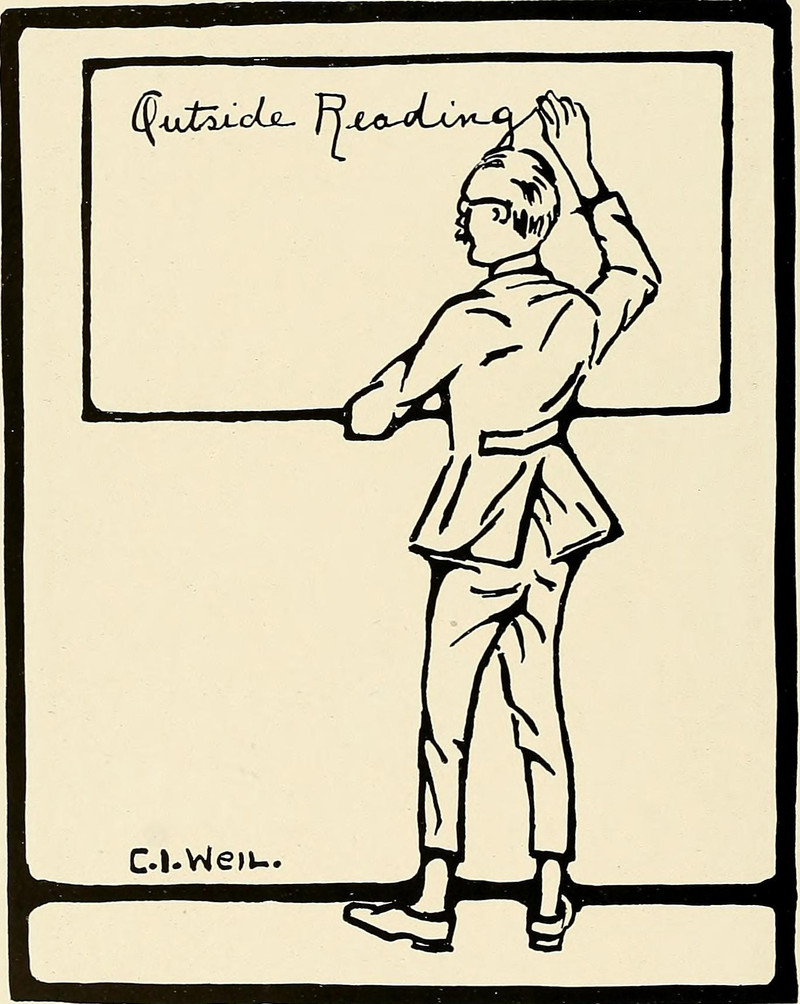 Outside Reading
C.I. Weil.